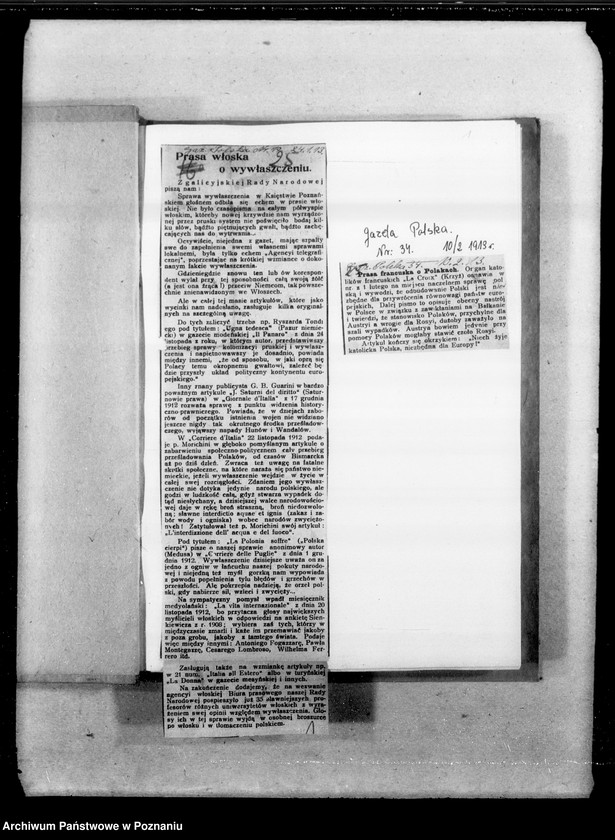 Prasa włoska
o wywłaszczeniu.
Z galicyjskiej Rady Narodowej
piszą nam:
Sprawa wywłaszczenia w Księstwie Poznań-
skiem głośnem odbiła się echem w prasie wło-
skiej. Nie było czasopisma na całym półwyspie
włoskim, któreby nowej krzywdzie nam wyrządzo-
nej przez pruski system nie poświęciło bodaj kil-
ku słów, bądźto piętnujących gwałt, bądźto zachę-
cających nas do wytrwania..
Oczywiście, niejedna z gazet, mając szpalty
swe do zapełnienia swemi własnemi sprawami
lokalnemi, była tylko echem „Agencyi telegrafi-
cznej", poprzestając na krótkiej wzmiance o doko-
nanym fakcie wywłaszczenia.
Gdzieniegdzie znowu ten lub ów korespon-
dent wylał przy tej sposobności całą swoją żółć
(a jest ona żrąca!) przeciw Niemcom, tak powsze-
chnie znienawidzonym we Włoszech.
Ale w całej tej masie artykułów, które jako
wycinki nam nadesłano, zasługuje kilka oryginal-
nych na szczególną uwagę.
Do tych zaliczyć trzeba np. Ryszarda Tondi
ego pod tytułem: „Ugna tedesca" (Pazur niemie-
cki) w gazecie modeńskiej „Il Panaro" z dnia 24
listopada z roku, w którym autor, przedstawiwszy
przebieg sprawy kolonizacyi pruskiej i wywłasz-
czenia i napiętnowawszy je dosadnio, powiada
między innemi, „że od sposobu, w jaki oprą się
Polacy temu okropnemu gwałtowi, zależeć bę-
dzie przyszły układ polityczny kontynentu euro-
pejskiego."
Inny znany publicysta G. B. Guarini w bardzo
poważnym artykule „J. Saturni del diritto" (Satur-
nowie prawa) w „Giornale d'Italia" z 17 grudnia
1912 rozważa sprawę z punktu widzenia history-
czno-prawniczego. Powiada, że w dziejach zabo-
rów od początku istnienia wojen nie widziano
jeszcze nigdy tak okrutnego środka prześladow-
czego, wyjąwszy napady Hunów i Wandalów.
W „Corriere d'Italia" 22 listopada 1912 poda-
je p. Morichini w głęboko pomyślanym artykule o
zabarwieniu społeczno-politycznem cały przebieg
prześladowania Polaków, od czasów Bismarcka
aż po dziś dzień. Zwraca też uwagę na fatalne
skutki społeczne, na które naraża się państwo nie-
mieckie, jeżeli wywłaszczenie wejdzie w życie w
całej swej rozciągłości. Zdaniem jego wywłaszcze-
nie nie dotyka jedynie narodu polskiego, ale
godzi w ludzkość całą, gdyż stwarza wypadek do-
tąd niesłychany, a dzisiejszej walce narodowościo-
wej daje w rękę broń straszną, broń niedozwolo-
ną: sławne interdictio aquae et ignis (zakaz i za-
bór wody i ogniska) wobec narodów zwyciężo-
nych! Zatytułował też p. Morichini swój artykuł:
„L'interdizione dell' acqua e del fuoco".
Pod tytułem: „La Polonia soffre" („Polska
cierpi") pisze o naszej sprawie anonimowy autor
(Medusa) w „Corriere delle Puglie" z dnia 1 gru-
dnia 1912. Wywłaszczenie dzisiejsze uważa on za
jedno z ogniw w łańcuchu naszej pokuty narodo-
wej i niejedną też myśl gorzką nam wypowiada
z powodu popełnienia tylu błędów i grzechów w
przeszłości. Ale pokrzepia nadzieją, że orzeł pol-
ski, gdy nabierze sił, wzleci i zwycięży...
Na sympatyczny pomysł wpadł miesięcznik
medyolański: „La vita internazionale" z dnia 20
listopada 1912, bo przytacza głosy największych
myślicieli włoskich w odpowiedzi na ankietę Sien-
kiewicza z r. 1908; wybiera zaś tych, którzy w
międzyczasie zmarli i każe im przemawiać jakoby
z poza grobu, jakoby z tamtego świata. Podaje
więc między innemi: Antoniego Fogazzarę, Pawła
Montegazzę, Cesarego Lombroso, Wilhelma Fer-
rero itd.
Zasługują także na wzmiankę artykuły np.
w 21 num. „Italia all Estero" albo w turyńskiej
„La Donna" w gazecie mesyńskiej i innych.
Na zakończenie dodajemy, że na wezwanie
agencyi włoskiej Biura prasowego naszej Rady
Narodowej pospieszyło już 33 sławniejszych pro-
fesorów różnych uniwersytetów włoskich z wyra-
żeniem swej opinii względem wywłaszczenia. Gło-
sy ich w tej sprawie wyjdą w osobnej broszurze
po włosku i w tłomaczeniu polskiem.
Gazeta Polska.
Nr. 34. 10/2 1913r.
Prasa francuska o Polakach. Organ kato-
lików francuskich „La Croix" (Krzyż) omawia w
nr. z 1 lutego na miejscu naczelnem sprawę pol-
ską i wywodzi, że odbudowanie Polski jest niez-
będne dla przywrócenia równowagi państw euro-
pejskich. Dalej pismo to opisuje obecny nastrój
w Polsce w związku z zawikłaniami na Bałkanie
i twierdzi, że stanowisko Polaków, przychylne dla
Austryi a wrogie dla Rosyi, dużoby zaważyło na
szali wypadków. Austrya bowiem jedynie przy
pomocy Polaków mogłaby stawić czoło Rosyi.
Artykuł kończy się okrzykiem: „Niech żyje
katolicka Polska, niezbędna dla Europy!"
Archiwum Państwowe w Poznaniu